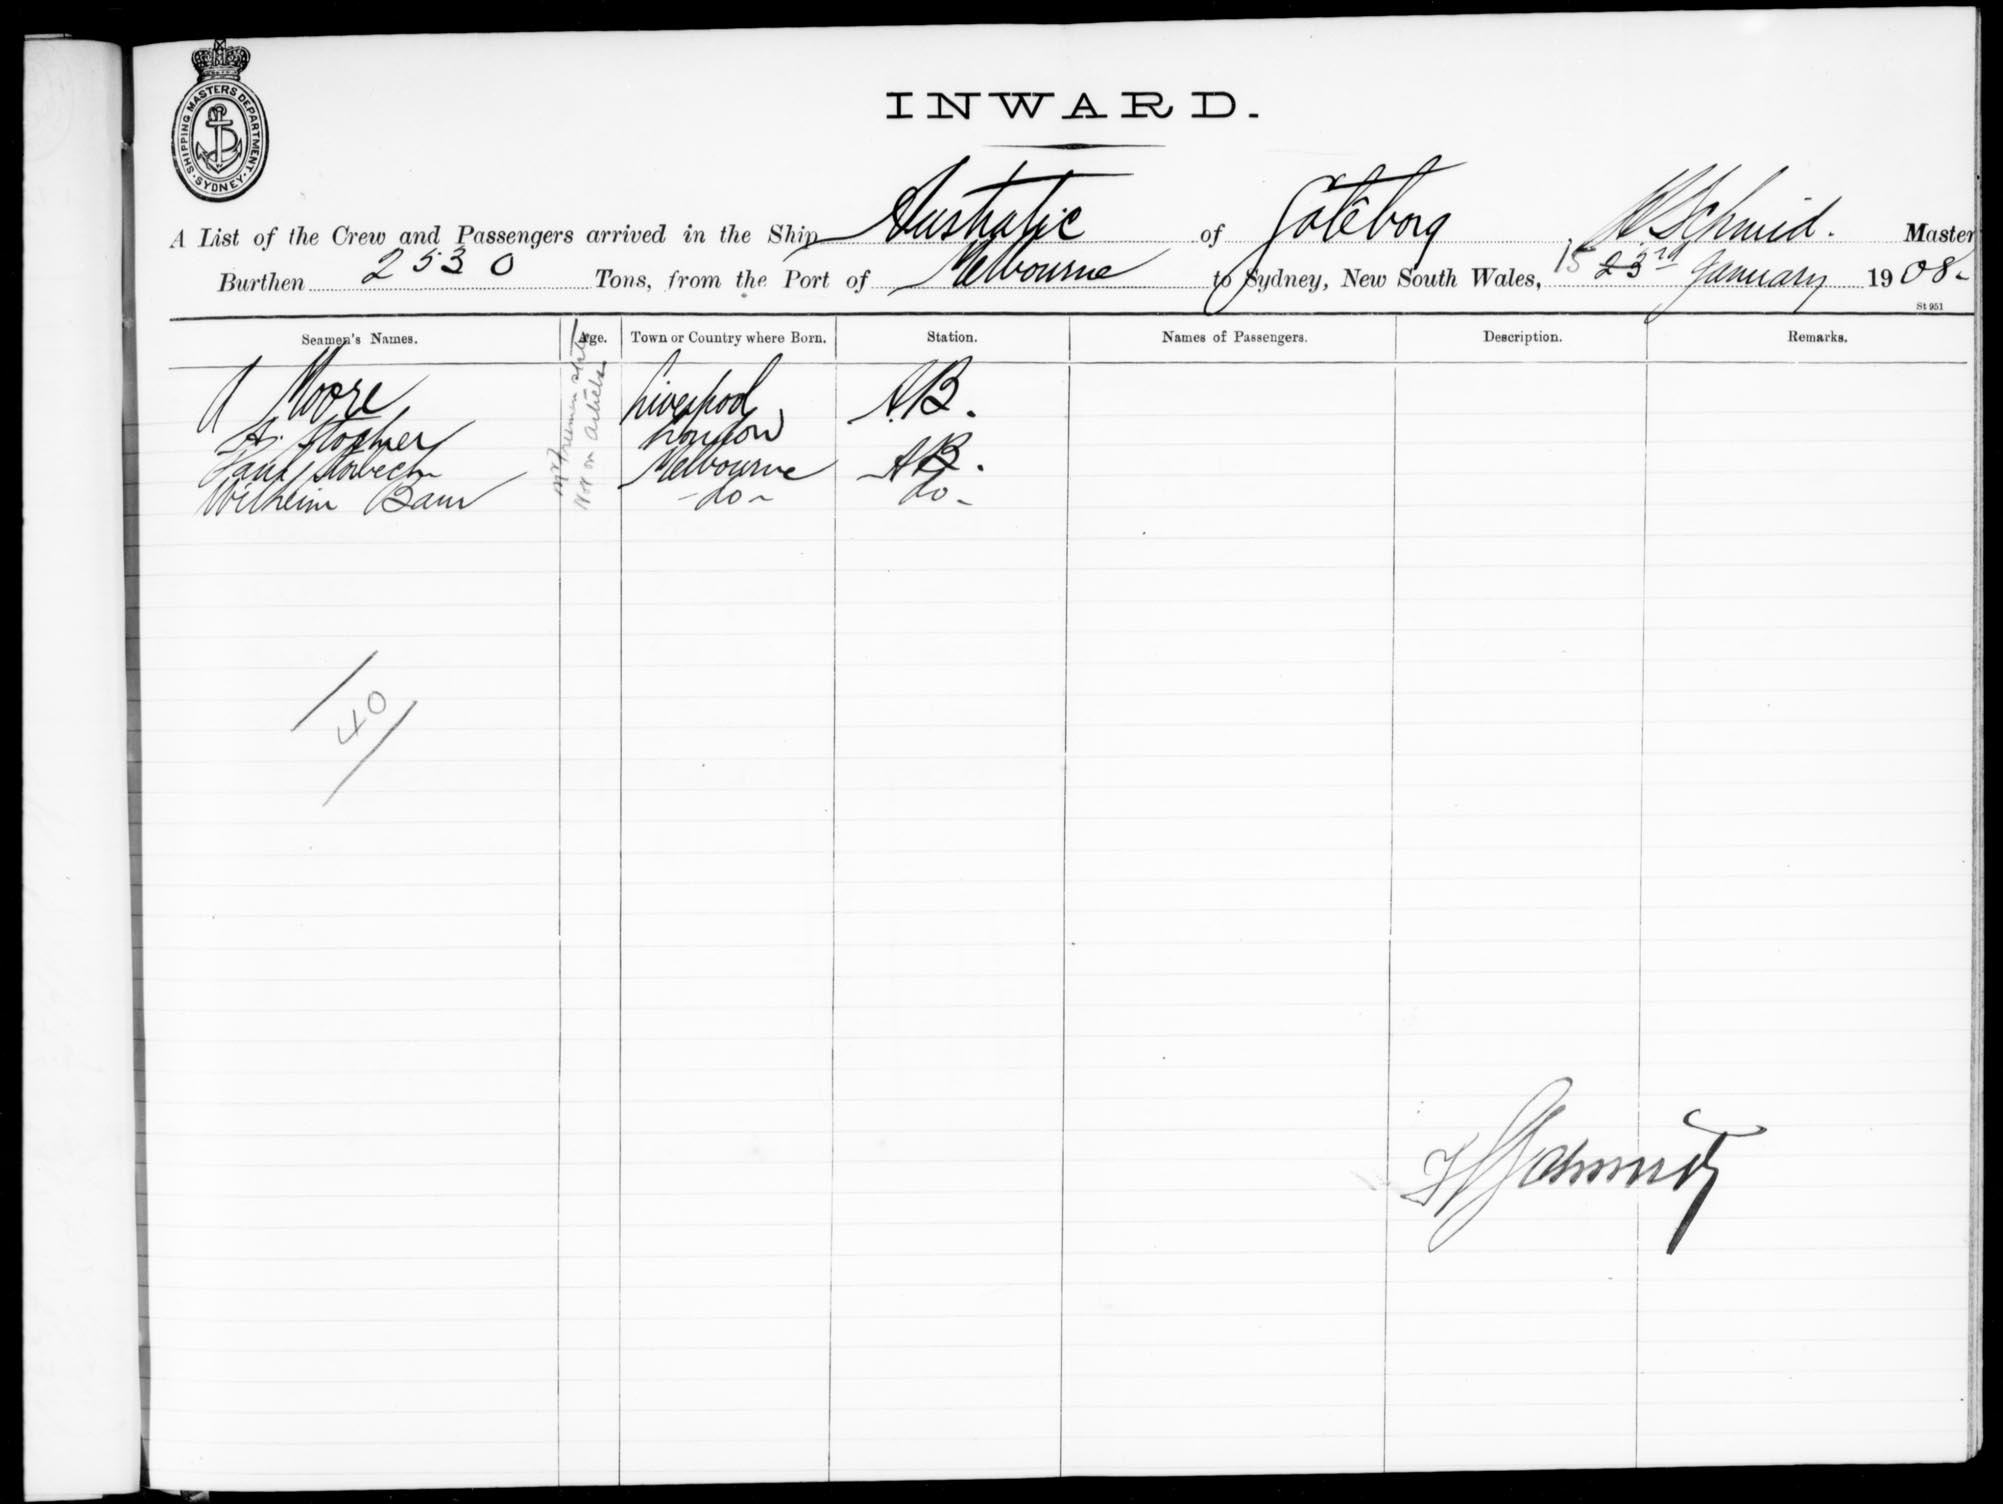 SHIPPING MASTERS DEPARTMENT. SYDNEY.
INWARD.
A List of the Crew and Passengers arrived in the Ship Australic of Göteborg, Schmid. Master
Burthen 2530 Tons, from the Port of Melbourne to Sydney, New South Wales, 15 23rd January 1908-
St 951
Seamen's Names. Age. Town or Country where Born. Station. Names of Passengers. Description. Remarks.
A Moore Liverpool A.B.
A. London
Melbourne A.B.
Wilhelm Baur -do- do-
Not on articles
40